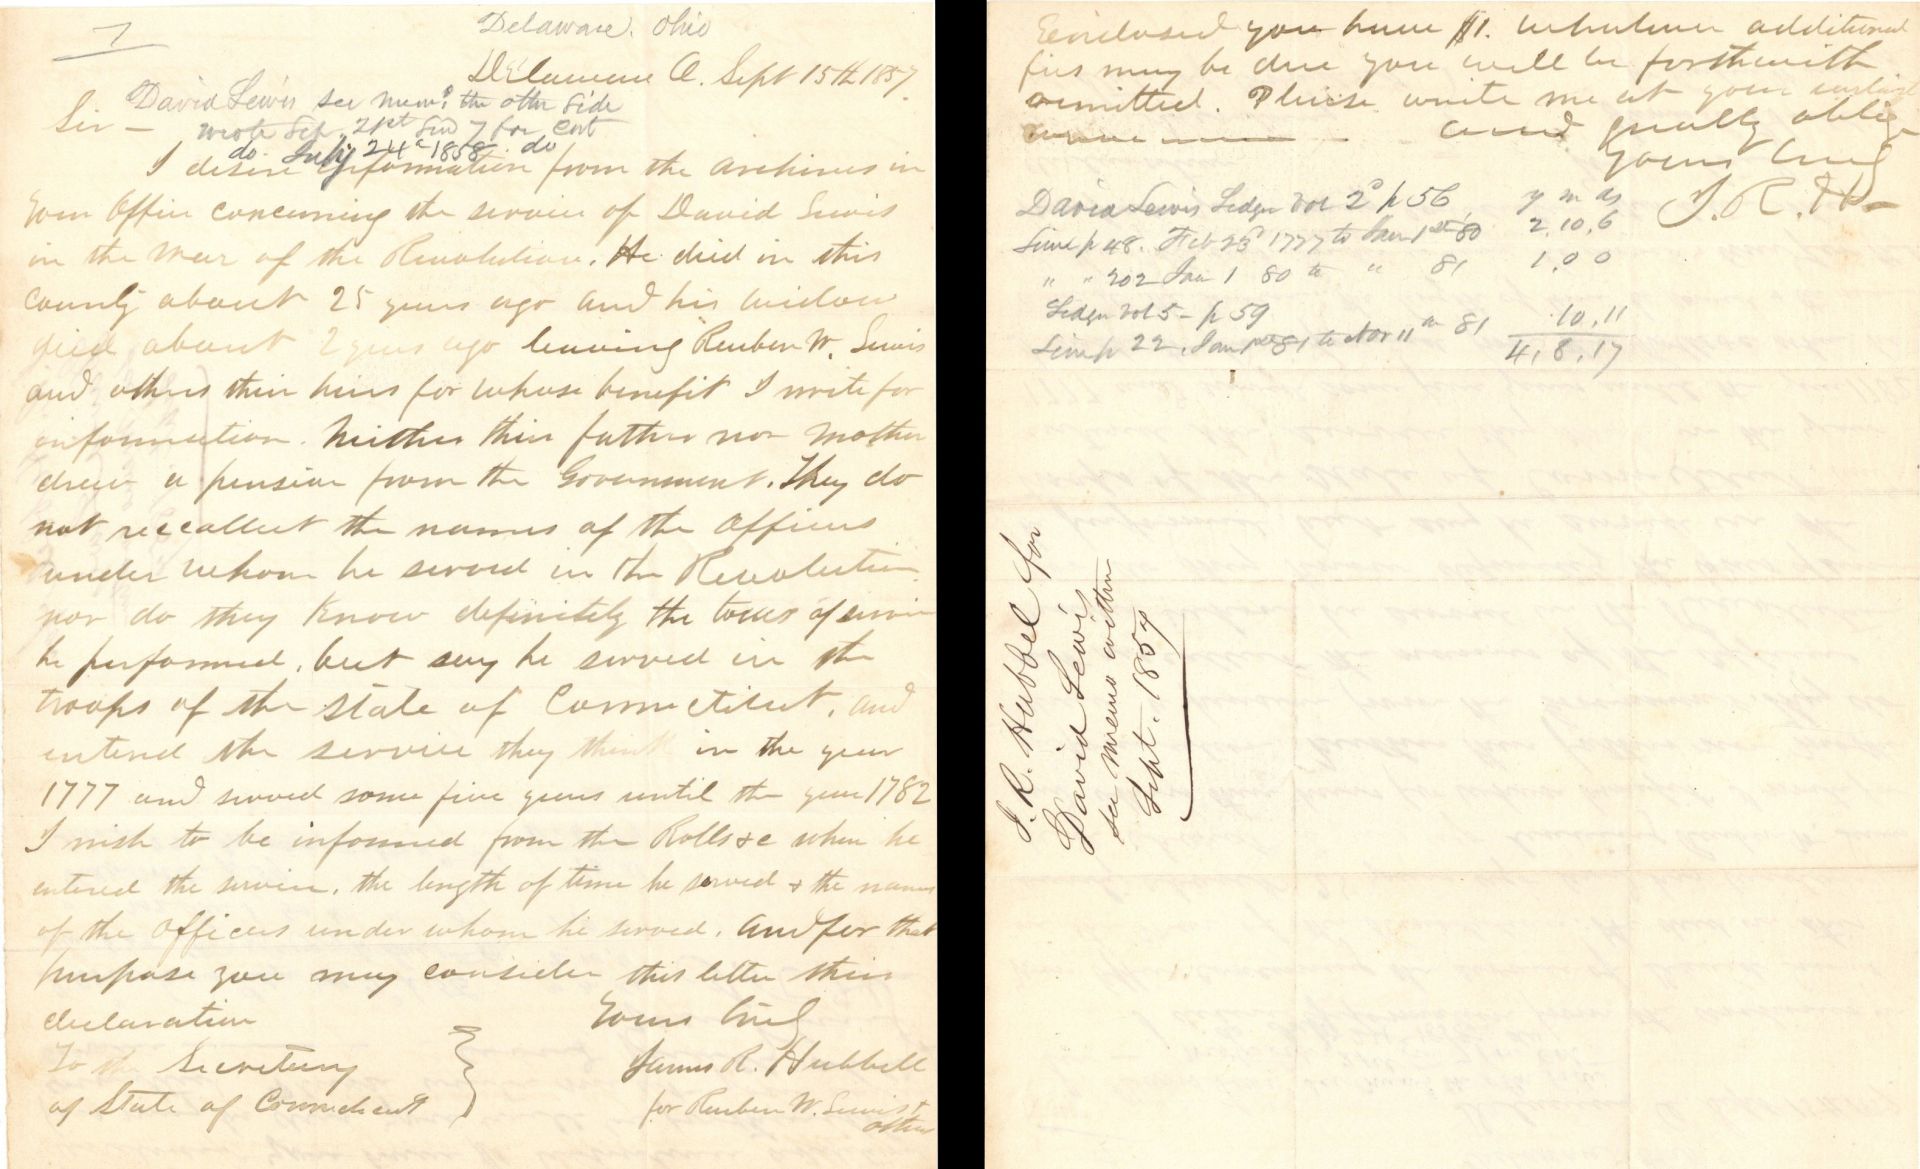 7
Delaware. Ohio
Delaware O. Sept 15th 1857
David Lewis see memo the other side
Sir —
wrote Sep. 21st for cert
do. July 24th 1858. do
I desire information from the archives in
Your Office concerning the service of David Lewis
in the War of the Revolution. He died in this
County about 25 years ago and his widow
died about 2 years ago leaving Reuben W. Lewis
and others their heirs for whose benefit I write for
information. Neither their father nor Mother
drew a pension from the Government. They do
not reccollect the names of the Officers
under whom he served in the Revolution
nor do they know definitely the tours of service
he performed, but say he served in the
troops of the state of Connecticut, and
entered the service they think in the year
1777 and served some five years until the year 1782
I wish to be informed from the Rolls &c when he
entered the service, the length of time he served & the names
of the Officers under whom he served. And for that
purpose you may consider this letter their
declaration
Yours truly
To the Secretary
of State of Connecticut
James R. Hubbell
for Reuben W. Lewis &
others
Enclosed you have $1. whatever additional
fees may be due you will be forthwith
remitted. Please write me at your earliest
convenience and greatly oblige
Yours truly
J. R. H—
David Lewis Ledger Vol 2d p 56 y m ds
Line p 48. Feb 25 1777 to Jan 1st 80 2,10,6
" " 202 Jan 1 80 to " 81 1,0 0
Ledger vol 5 - p 59
Line p 22. Jan 1st 81 to Nov 11th 81 10,11
4,8,17
J. R. Hubbel for
David Lewis
see memo within
Sept. 1857